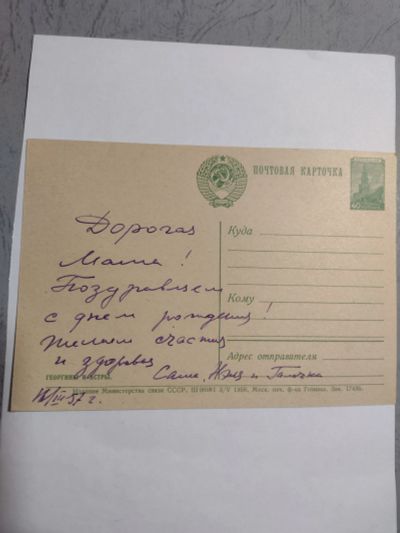 ПОЧТОВАЯ КАРТОЧКА
40
Куда
Кому
Адрес отправителя
Дорогая
Мама!
Поздравляем
с днем рождения!
Желаем счастья
и здоровья
Саша, и Галочка
ГЕОРГИНЫ И АСТРЫ.
Издание Министерства связи СССР. 1956.
/III 57 г.